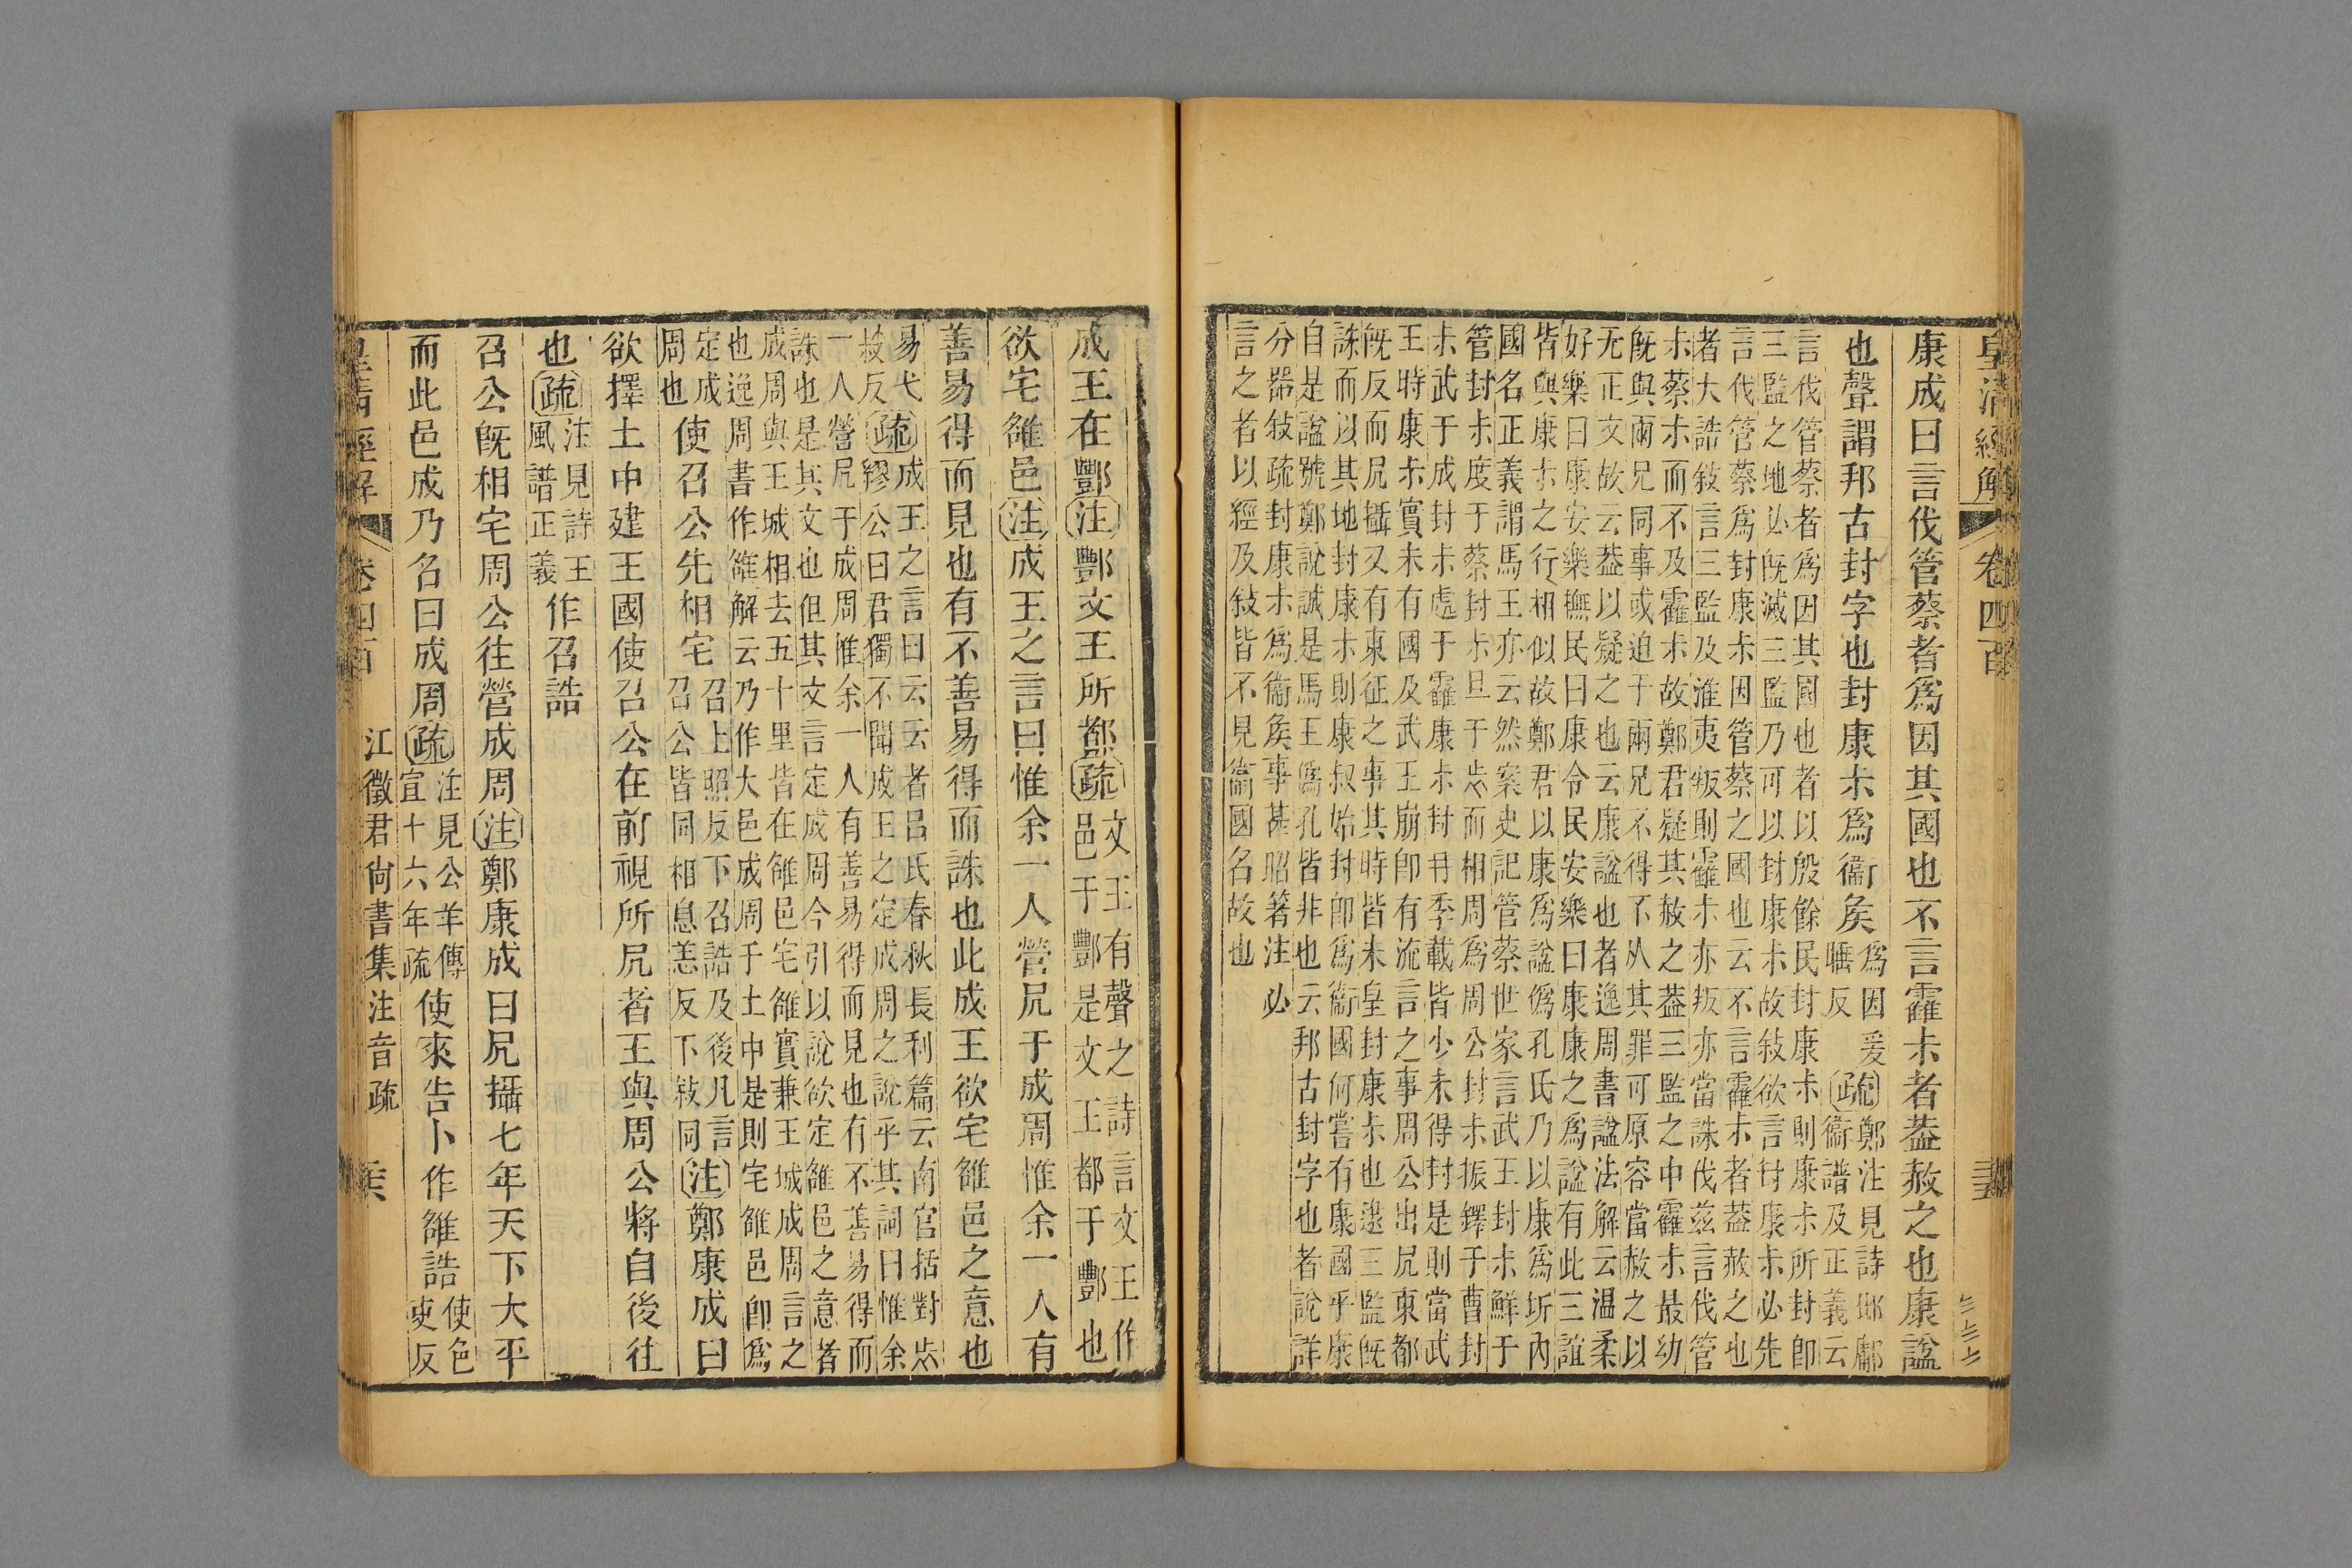 皇清經解 卷四百 三五
康成曰言伐管蔡者爲因其國也不言霍尗者葢赦之也康諡
也聲謂邦古封字也封康尗爲衞矦
爲因爰
反
疏
鄭注見詩邶鄘
衞譜及正義云
言伐管蔡者爲因其國也者以殷餘民封康尗則康尗所封卽
三監之地必旣滅三監乃可以封康尗故敍欲言封康尗必先
言伐管蔡爲封康尗因管蔡之國也云不言霍尗者葢赦之也
者大誥敍言三監及淮夷叛則霍尗亦叛亦當誅伐兹言伐管
尗蔡尗而不及霍尗故鄭君疑其赦之葢三監之中霍尗最幼
旣與兩兄同事或迫于兩兄不得不从其罪可原容當赦之以
无正文故云葢以疑之也云康諡也者逸周書諡法解云温柔
好樂曰康安樂撫民曰康令民安樂曰康康之爲諡有此三誼
皆與康尗之行相似故鄭君以康爲諡僞孔氏乃以康爲圻內
國名正義謂馬王亦云然案史記管蔡世家言武王封尗鮮于
管封尗度于蔡封尗旦于𣥐而相周爲周公封尗振鐸于曹封
尗武于成封尗處于霍康尗封冄季載皆少未得封是則當武
王時康尗實未有國及武王崩卽有流言之事周公出凥東都
旣反而凥攝又有東征之事其時皆未皇封康尗也逮三監旣
誅而以其地封康尗則康叔始封卽爲衞國何嘗有康國乎康
自是諡號鄭說誠是馬王僞孔皆非也云邦古封字也者說詳
分器敍疏封康尗爲衞矦事甚昭箸注必
言之者以經及敍皆不見衞國名故也
成王在酆注酆文王所都疏
文王有聲之詩言文王作
邑于酆是文王都于酆也
欲宅雒邑注成王之言曰惟余一人營凥于成周惟余一人有
善易得而見也有不善易得而誅也此成王欲宅雒邑之意也
易弋
豉反
疏
成王之言曰云云者吕氏春秋長利篇云南宮括對𣥐
繆公曰君獨不聞成王之定成周之說乎其詞曰惟余
一人營凥于成周惟余一人有善易得而見也有不善易得而
誅也是其文也但其文言定成周今引以說欲定雒邑之意者
成周與王城相去五十里皆在雒邑宅雒實兼王城成周言之
也逸周書作雒解云乃作大邑成周于土中是則宅雒邑卽爲
定成
周也
使召公先相宅
召上照反下召誥及後凡言
召公皆同相息恙反下敍同
注鄭康成曰
欲擇土中建王國使召公在前視所凥者王與周公將自後往
也疏
注見詩王
風譜正義
作召誥
召公旣相宅周公往營成周注鄭康成曰凥攝七年天下大平
而此邑成乃名曰成周疏
注見公羊傳
宣十六年疏
使來告卜作雒誥
使色
吏反
皇清經解 卷四百 江徵君尙書集注音疏 三六